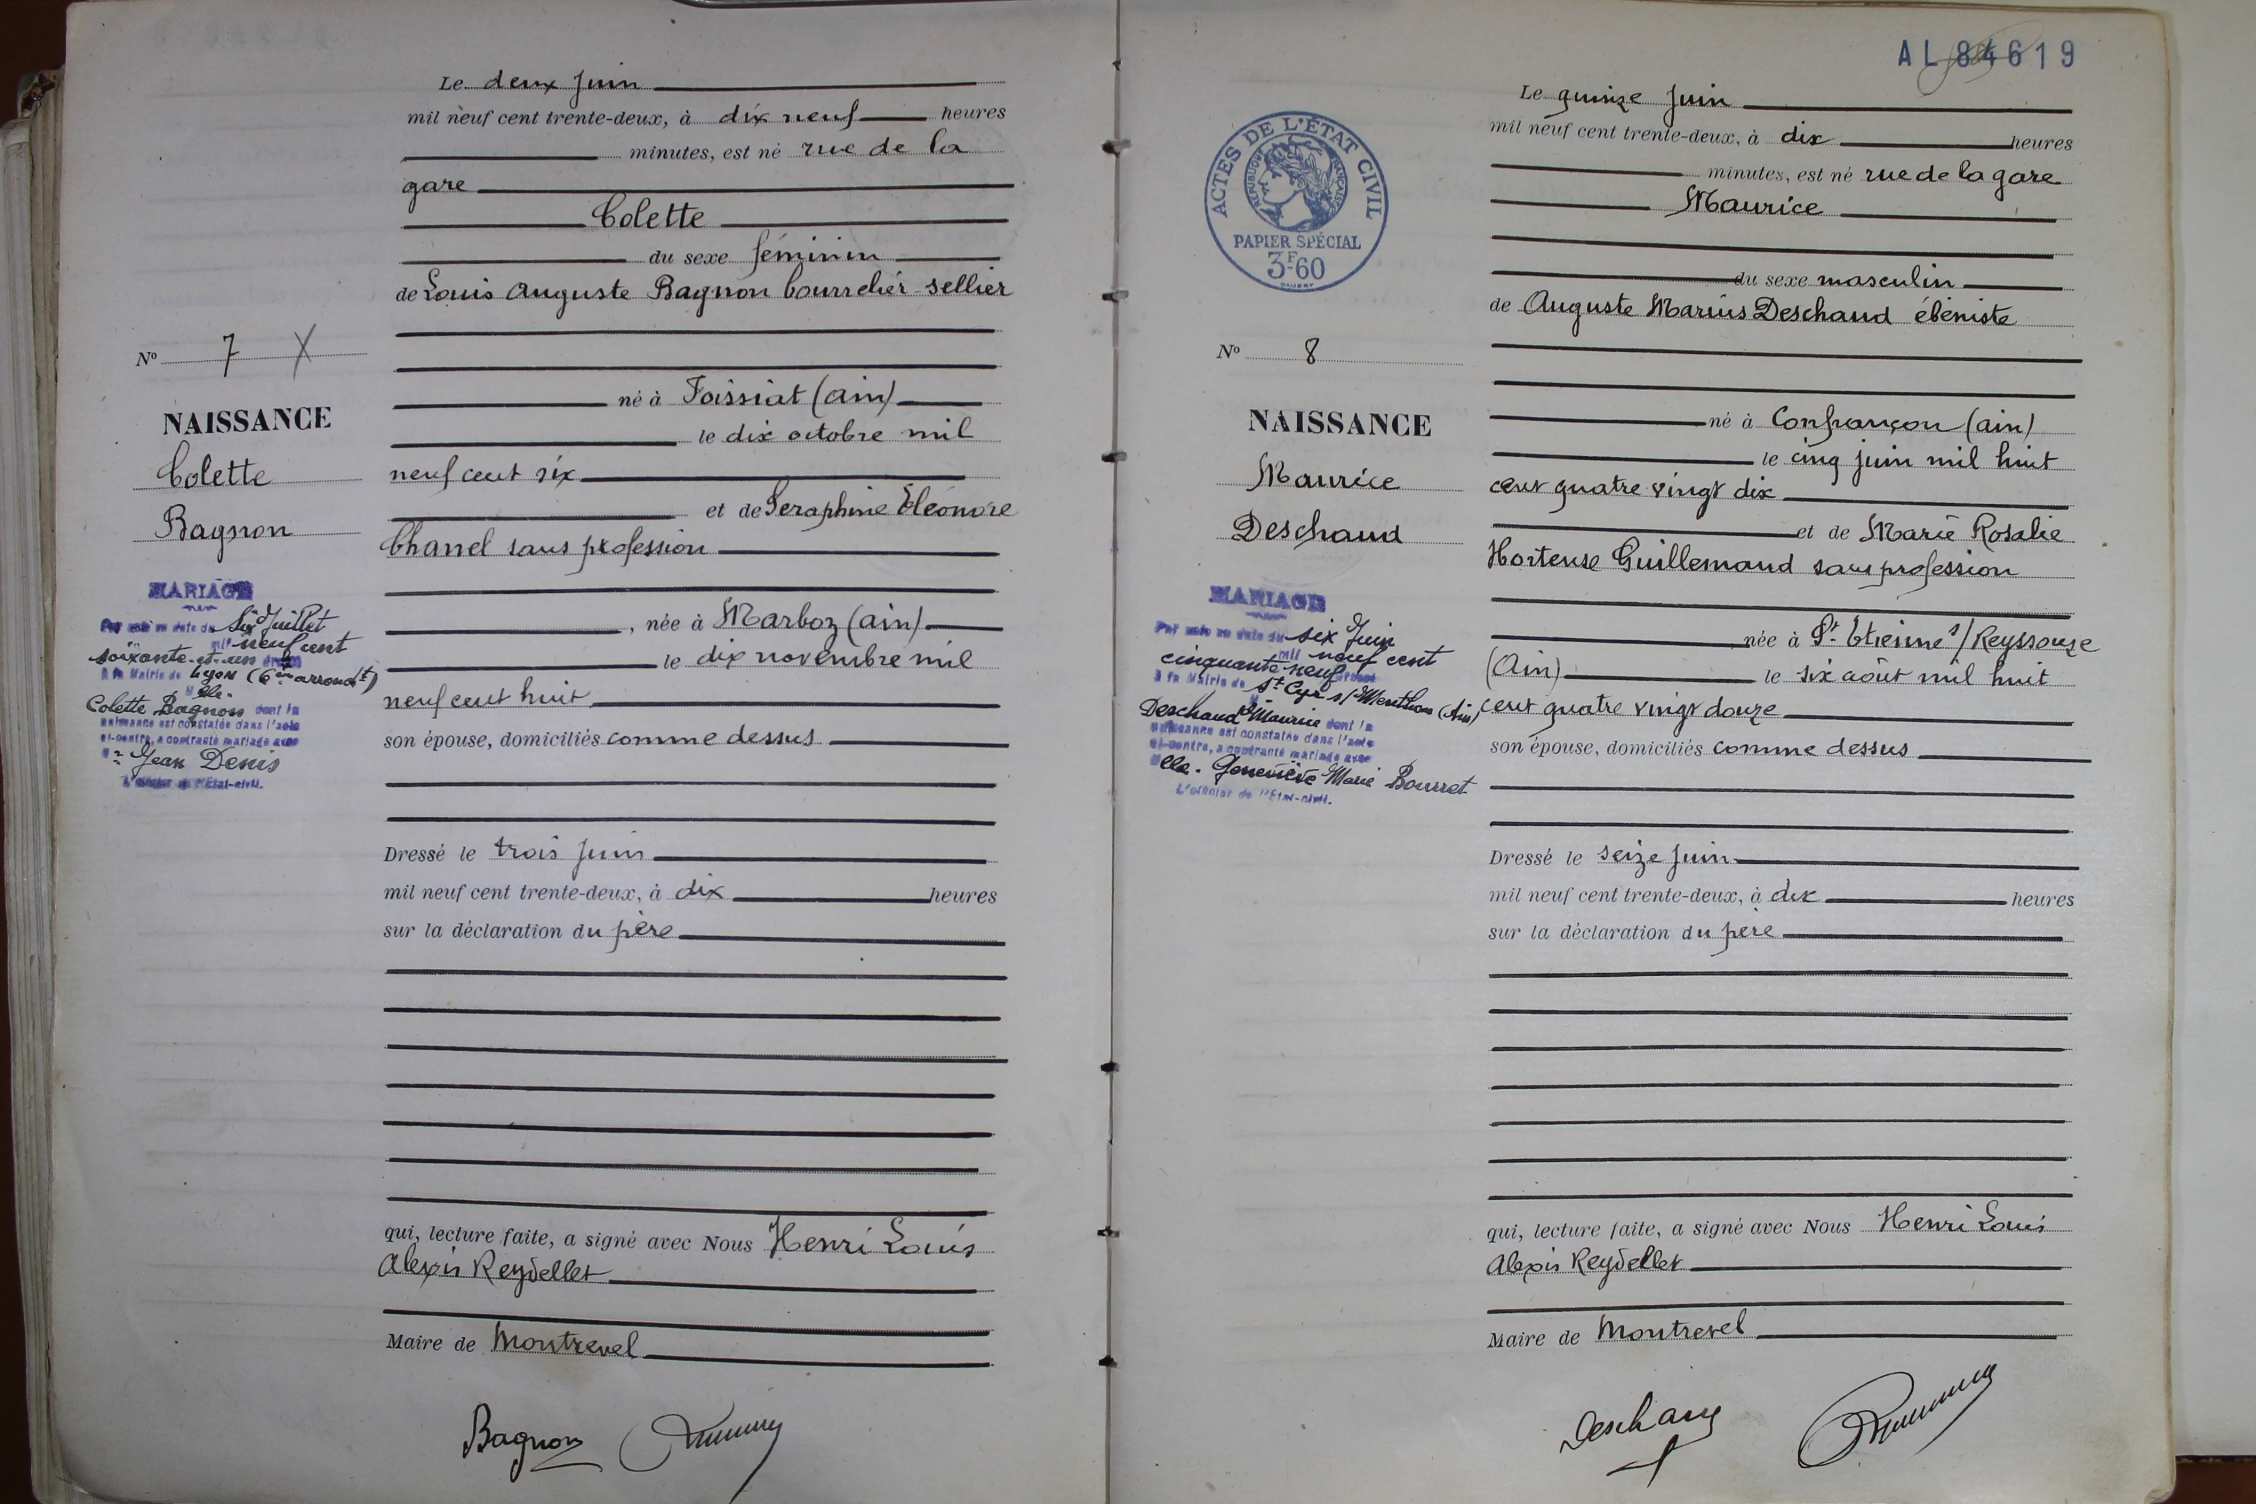 Le deux juin
mil neuf cent trente-deux, à dix neuf heures
minutes, est né rue de la
gare
Colette
du sexe féminin
de Louis Auguste Bagnon bourrelier-sellier
né à Foissiat (ain)
le dix octobre mil
neuf cent six
et de Seraphine Eléonore
Chanel sans profession
, née à Marboz (ain)
le dix novembre mil
neuf cent huit
son épouse, domiciliés comme dessus
Dressé le trois juin
mil neuf cent trente-deux, à dix heures
sur la déclaration du père
qui, lecture faite, a signé avec Nous Henri Louis
Alexis Reydellet
Maire de Montrevel
Bagnon
No 7 X
NAISSANCE
Colette
Bagnon
MARIAGE
Par acte en date du six Juillet
mil neuf cent
soixante-et-un
à la Mairie de Lyon (6ème arrondt)
Melle.
Colette Bagnon dont la
naissance est constatée dans l'acte
ci-contre, a contracté mariage avec
Mr Jean Denis
L'officier de l'État-civil.
AL 84619
ACTES DE L'ÉTAT CIVIL
RÉPUBLIQUE FRANÇAISE
PAPIER SPÉCIAL
3F60
Le quinze juin
mil neuf cent trente-deux, à dix heures
minutes, est né rue de la gare
Maurice
du sexe masculin
de Auguste Marius Deschaud ébéniste
né à Confrançon (ain)
le cinq juin mil huit
cent quatre vingt dix
et de Marie Rosalie
Hortense Guillemaud sans profession
née à St Etienne s/Reyssouze
(Ain) le six août mil huit
cent quatre vingt douze
son épouse, domiciliés comme dessus
Dressé le seize juin
mil neuf cent trente-deux, à dix heures
sur la déclaration du père
qui, lecture faite, a signé avec Nous Henri Louis
Alexis Reydellet
Maire de Montrevel
Deschaud
No 8
NAISSANCE
Maurice
Deschaud
MARIAGE
Par acte en date du six Juin
mil neuf cent
cinquante neuf
à la Mairie de St Cyr s/Menthon (Ain)
Deschaud Maurice dont la
naissance est constatée dans l'acte
ci-contre, a contracté mariage avec
Melle. Geneviève Marie Bourret
L'officier de l'État-civil.